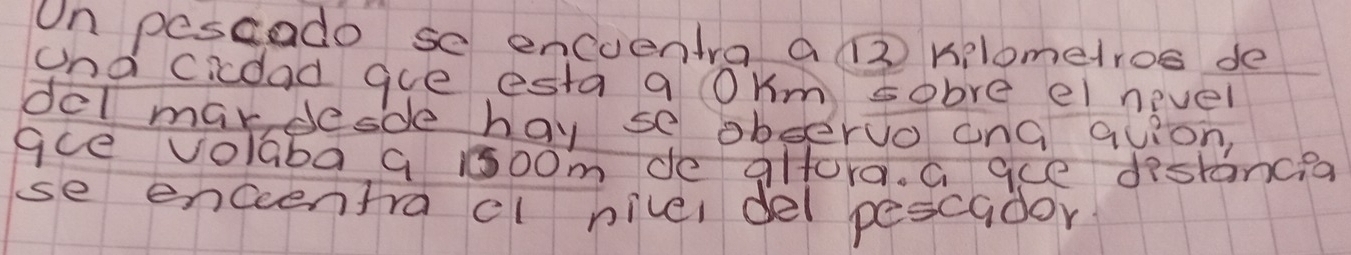 Un pescado se encuentra a 12 Kilometros de
una ciudad que esta a 0Km sobre el nivel
del mar desde hay se observo una avion,
que volaba a 1500m de altura. a que distancia
se encuentra el nivel del pescador